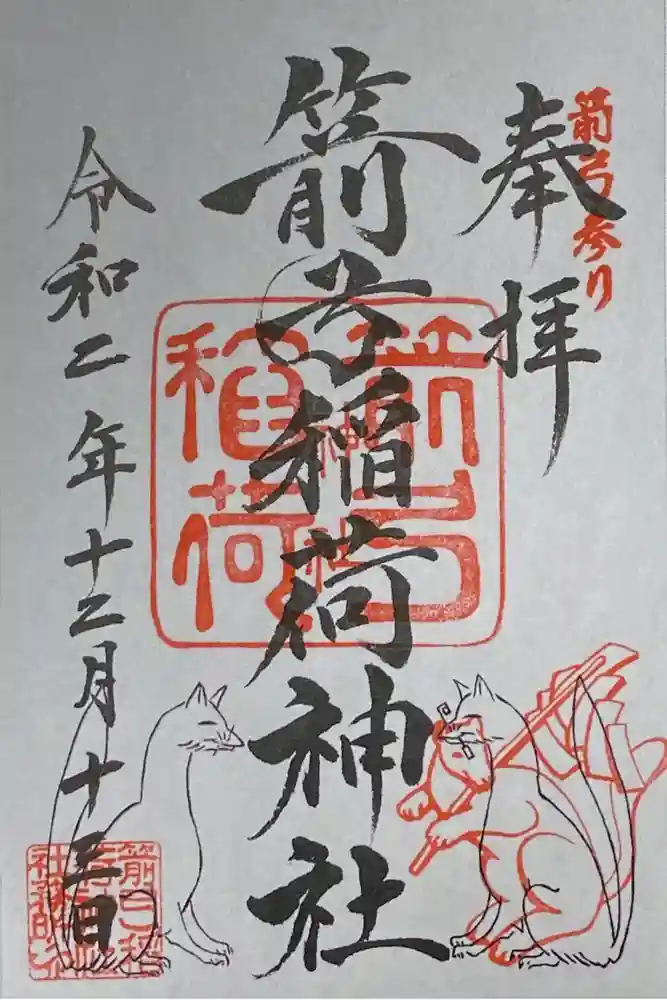 箭弓参り
奉拝
箭弓稲荷神社
令和二年十二月十三日
箭弓稲荷神社